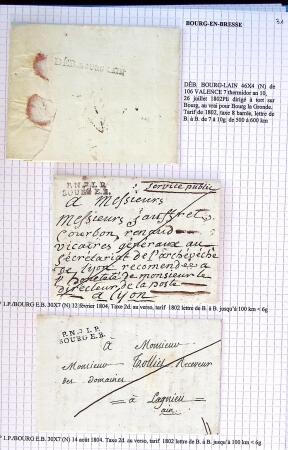 BOURG-EN-BRESSE
DÉB. BOURG-LAIN
DÉB. BOURG-LAIN 46X4 (N) de
106 VALENCE 7 thermidor an 10,
26 juillet 1802. dirigé à tort sur
Bourg, au vrai pour Bourg la Gronde.
Tarif de 1802, taxe 8 barrée, lettre de
B. à B. de 7 à 10g; de 500 à 600 km
Service public
P.N.P.L.P.
S/BOURG E.B.
A Messieurs
Messieurs jauffret
courbon, renaud
vicaires généraux au
secrétariat de l'archevêché
de Lyon recomendée à
de monsieur le
directeur de la poste
a Lyon
P./BOURG E.B. 30X7 (N) 12 février 1804. Taxe 2d. au verso, tarif 1802 lettre de B. à B. jusqu'à 100 km < 6g
P.N.P.L.P.
S/BOURG E.B.
A Monsieur
Monsieur Receveur
des Domaines
à Lagnieu
ain
P./BOURG E.B. 30X7 (N) 14 août 1804. Taxe 2d. au verso, tarif 1802 lettre de B. à B. jusqu'à 100 km < 6g